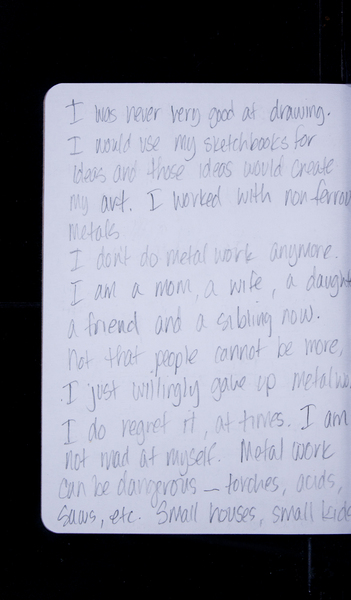 I was never very good at drawing.
I would use my sketchbooks for
ideas and those ideas would create
my art. I worked with non ferrou
metals
I don't do metal work anymore.
I am a mom, a wife, a daught
a friend and a sibling now.
Not that people cannot be more,
I just willingly gave up metalwo
I do regret it, at times. I am
not mad at myself. Metal work
can be dangerous - torches, acids,
saws, etc. Small houses, small kids